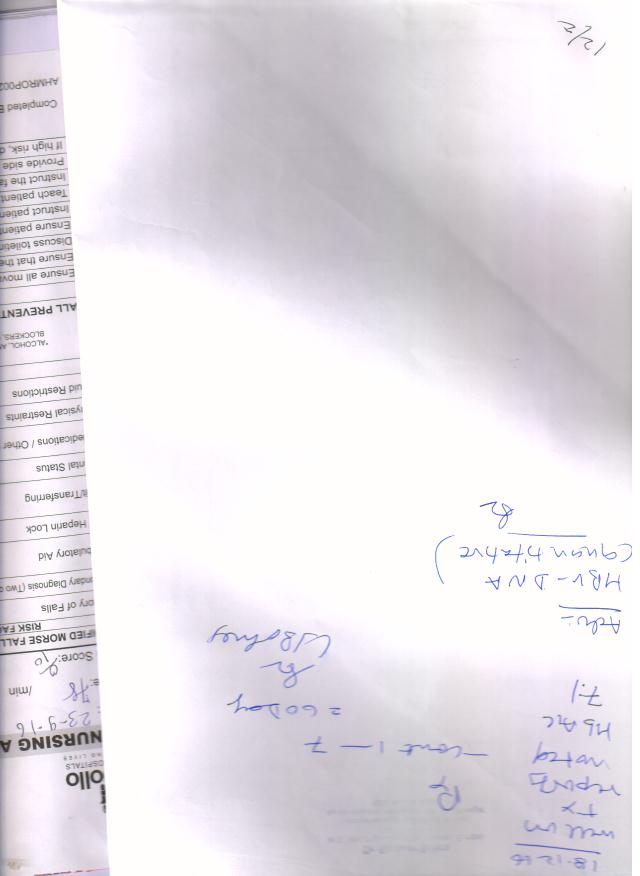 18-12-16
well on
Tx
reports
noted
HbA1C
7.1
Rx
- cont 1-7
= 60 Day
Adv:-
HBV-DNA
(quantitative)
12/2
ollo
OSPITALS
NG LIVES
NURSING A
: 23-9-16
e: 78 /min
Score:
IFIED MORSE FALL
RISK FAC
ory of Falls
ondary Diagnosis (Two o
bulatory Aid
Heparin Lock
it/Transferring
ntal Status
edications / Other
ysical Restraints
uid Restrictions
*ALCOHOL, AN
BLOCKERS,
ALL PREVENT
Ensure all mova
Ensure that the
Discuss toiletin
Ensure patient
Instruct patien
Teach patient
Instruct the fa
Provide side
If high risk, d
Completed B
AHMROP002